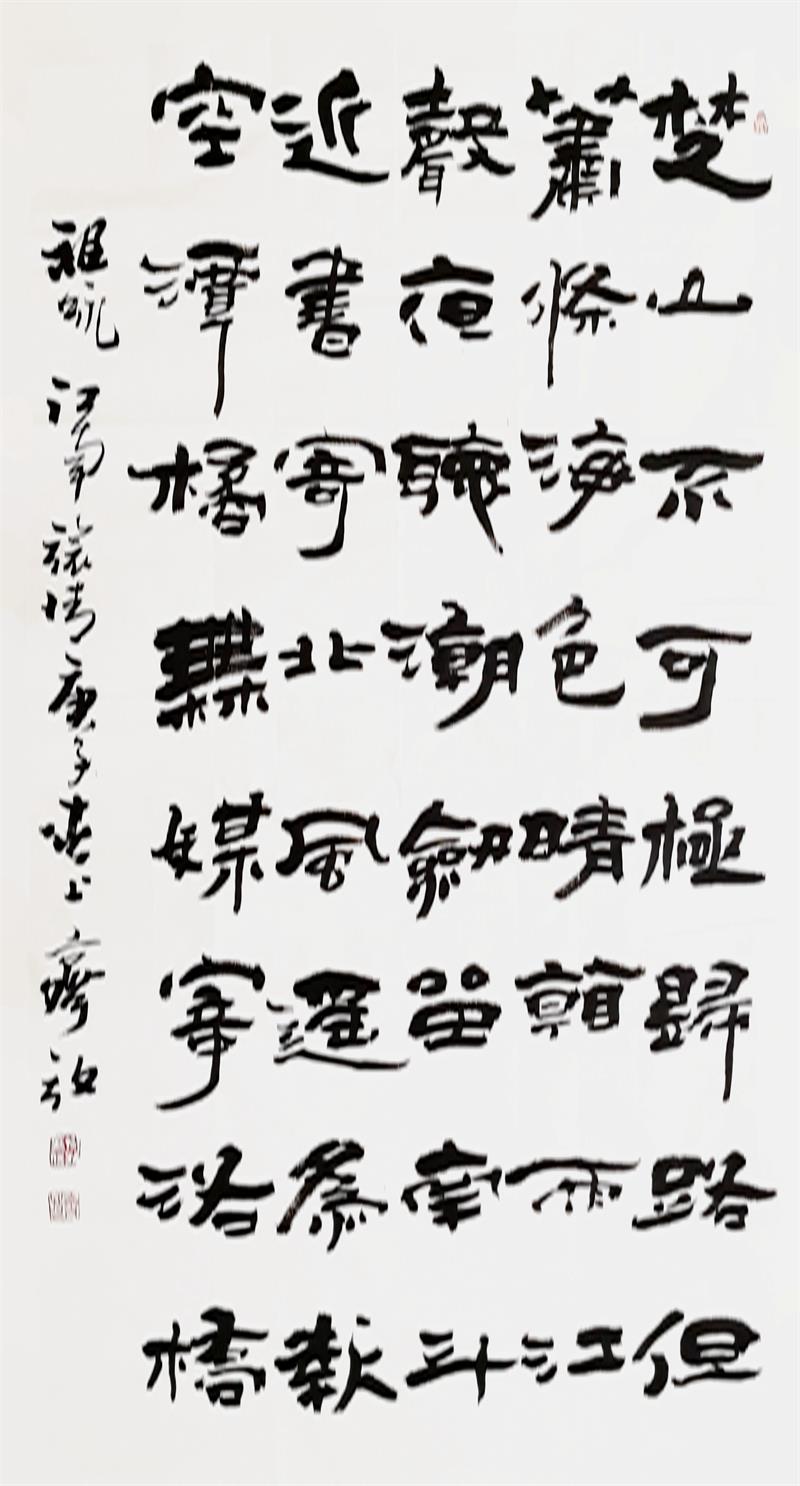 楚山不可極歸路但
蕭條海色晴看雨江
聲夜聽潮劍留南斗
近書寄北風遙為報
空潭橘無媒寄洛橋
祖咏江南旅情庚子春上